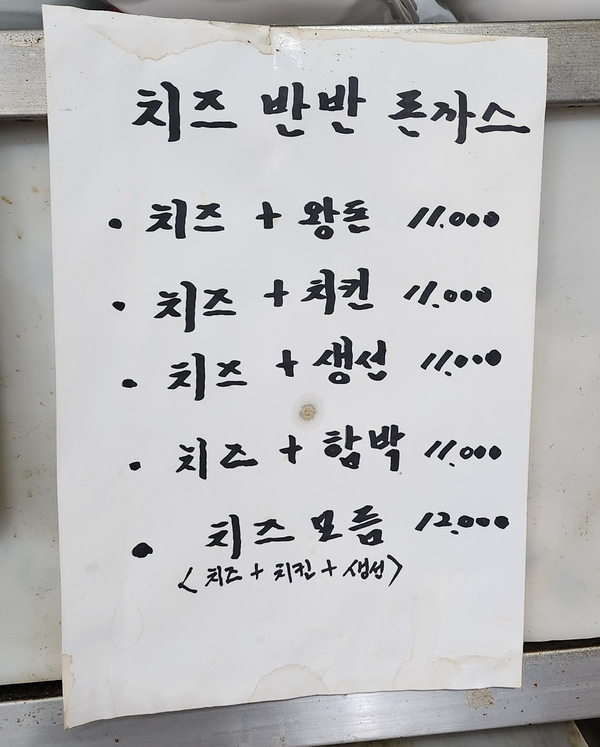 치즈 반반 돈까스
• 치즈 + 왕돈 11.000
• 치즈 + 치킨 11.000
• 치즈 + 생선 11.000
• 치즈 + 함박 11.000
• 치즈 모듬 12.000
<치즈 + 치킨 + 생선>